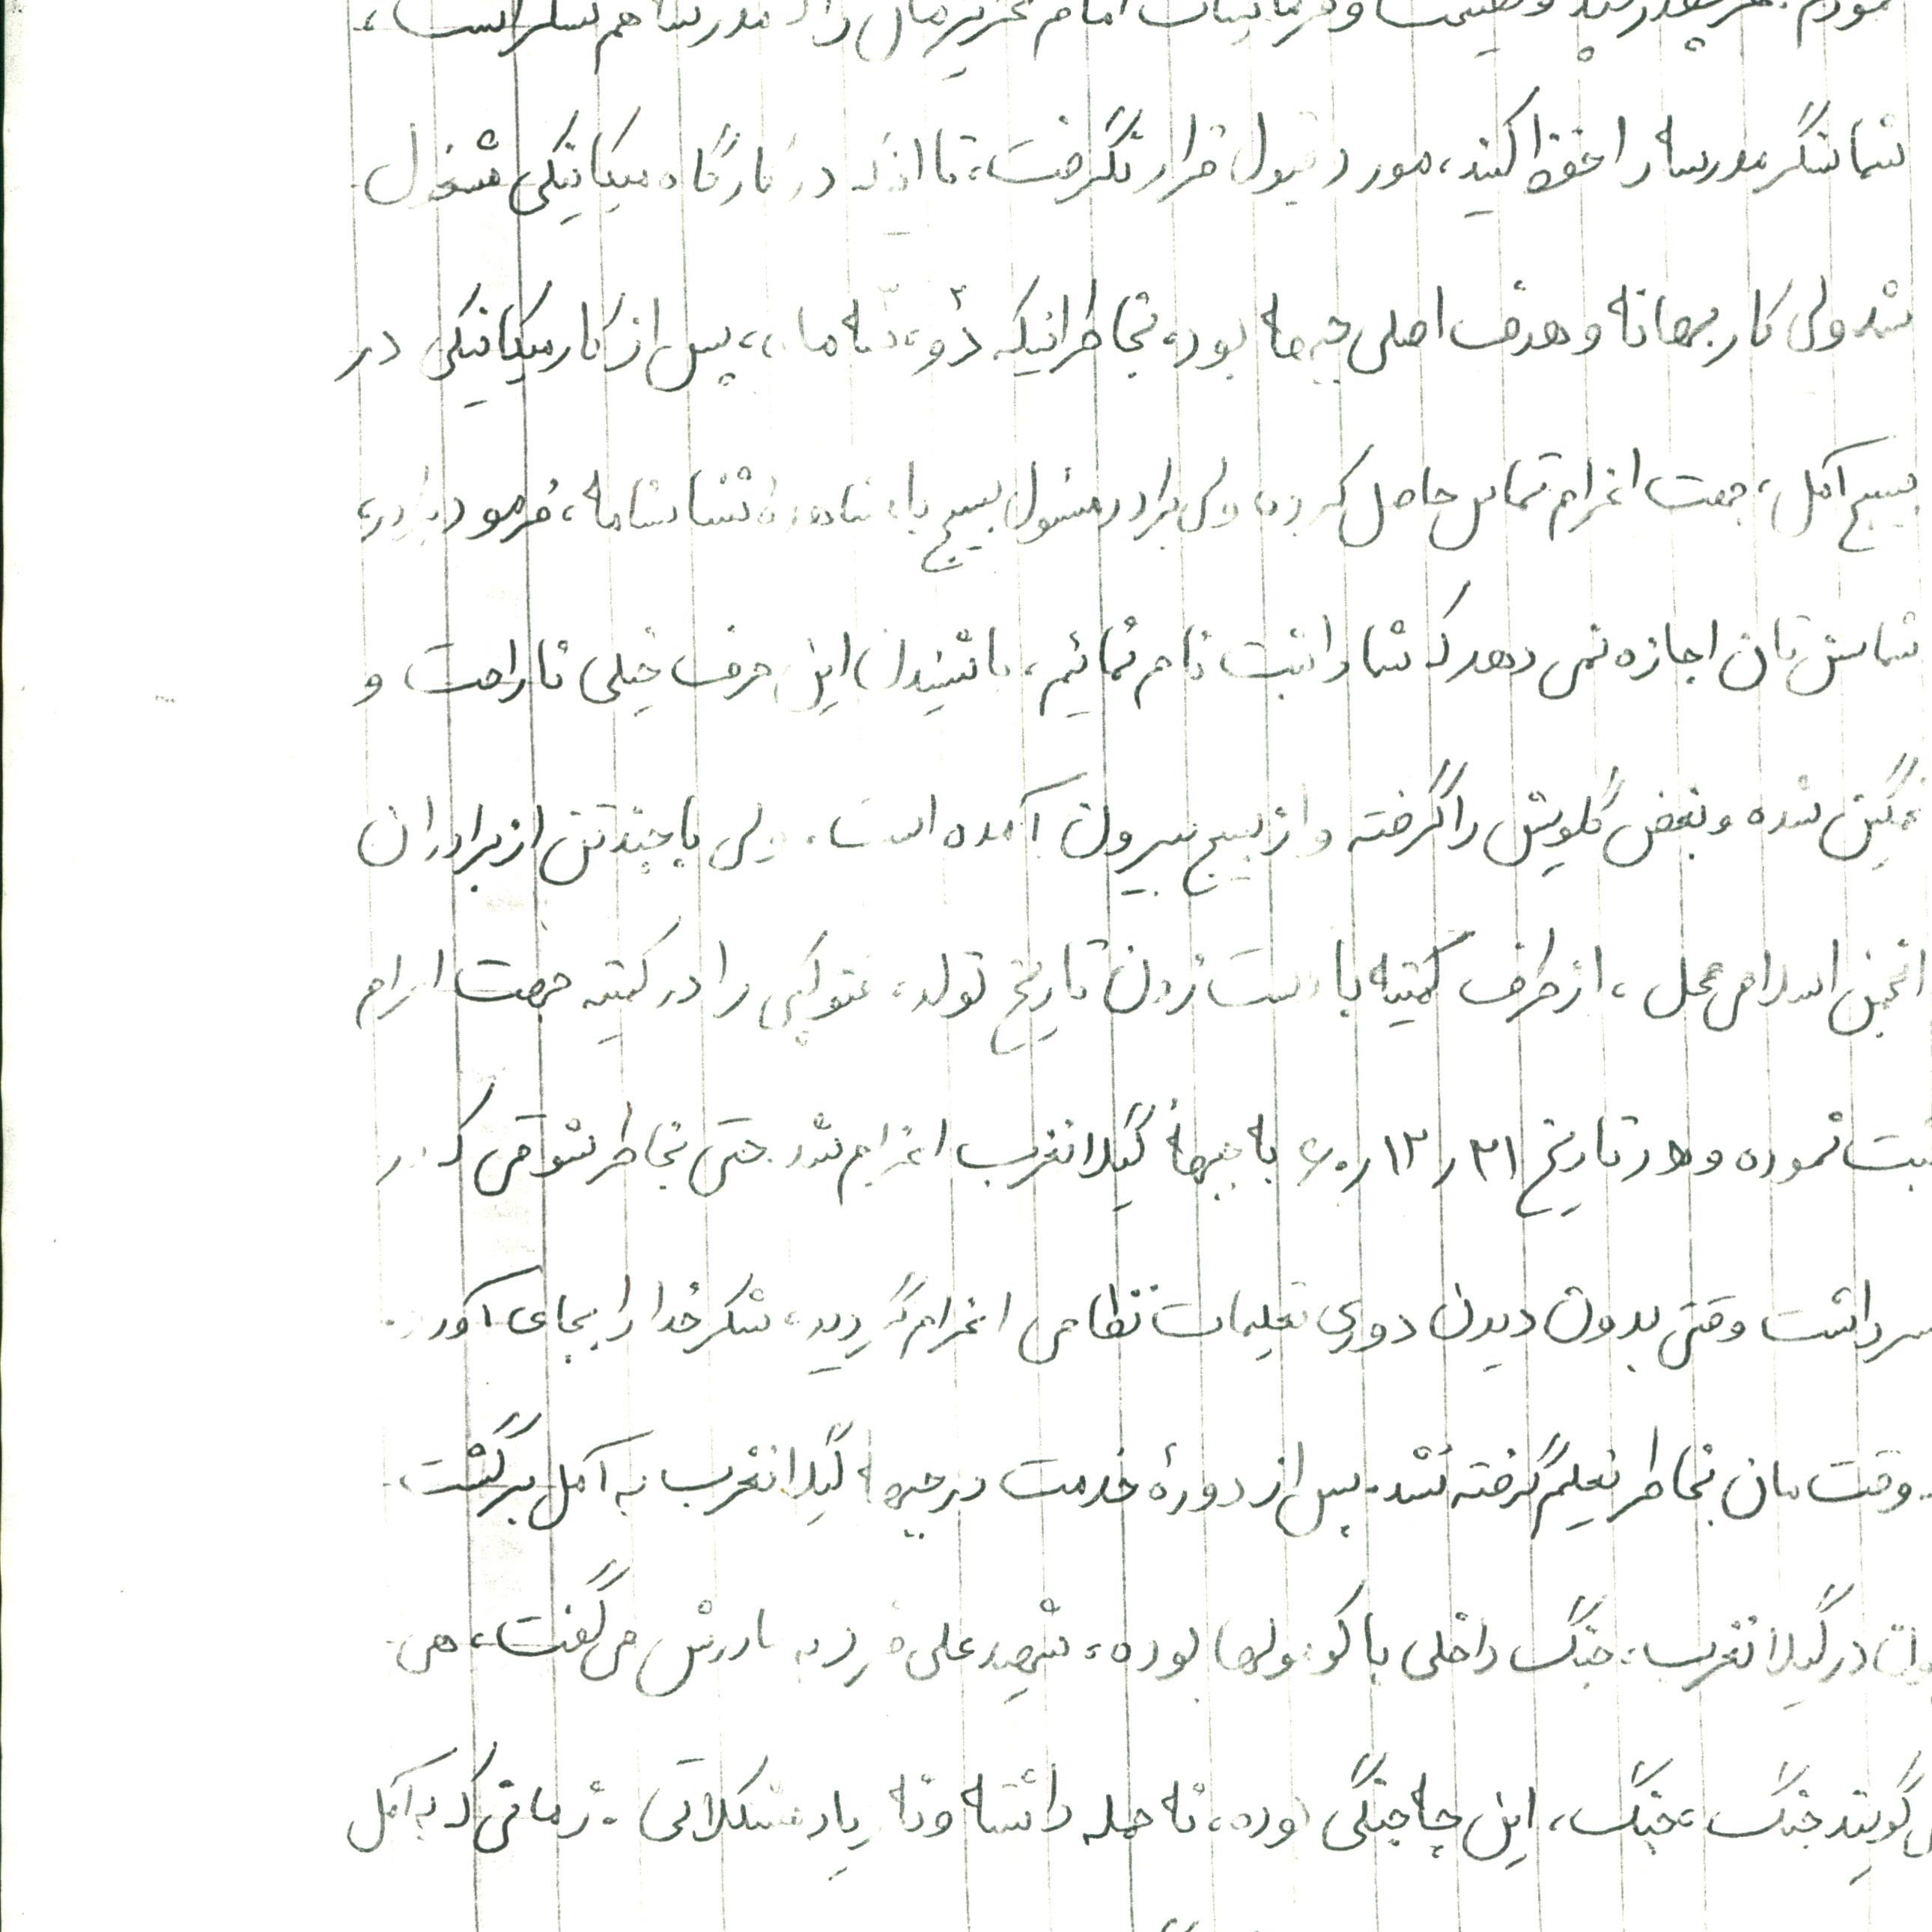 نمودم. هرچقدر پند و نصیحت و فرمایشات امام عزیزمان را که مدرسه هم سنگر است،
شما سنگر مدرسه را حفظ کنید، مورد قبول قرار نگرفت، تا اینکه در کارگاه میکانیکی مشغول
شد ولی کار بهانه و هدف اصلی جبهه بود، بخاطر اینکه پس از کار میکانیکی در
بسیج آمل، جهت اعزام تماس حاصل کرده ولی برادر مسئول بسیج با مشاهدهٔ شناسنامه، فرمود برادر،
شما سن تان اجازه نمی دهد که شما را ثبت نام نمائیم، با شنیدن این حرف خیلی ناراحت و
غمگین شده و بغض گلویش را گرفته و از بسیج بیرون آمده است، ولی با چند تن از برادران
انجمن اسلامی محل، از طرف کمیته با دست زدن تاریخ تولد، فتوکپی را در کمیته جهت اعزام
ثبت نموده و در تاریخ ۲۱ر۱۲ر۶۰ به جبههٔ گیلانغرب اعزام شد حتی بخاطر شوقی که در
سر داشت وقتی بدون دیدن دوری تعلیمات نظامی اعزام گردید، شکر خدا را بجای آورد
وقت مان بخاطر تعلیم گرفته نشد. پس از دورهٔ خدمت در جبهه گیلانغرب به آمل برگشت
در گیلانغرب، جنگ داخلی با کومولها بوده، شهید علی به مادرش می گفت، هی
گویند جنگ، جنگ، این چه جنگی بوده، نه حمله داشته و نه زیاد مشکلاتی. زمانی که به آمل